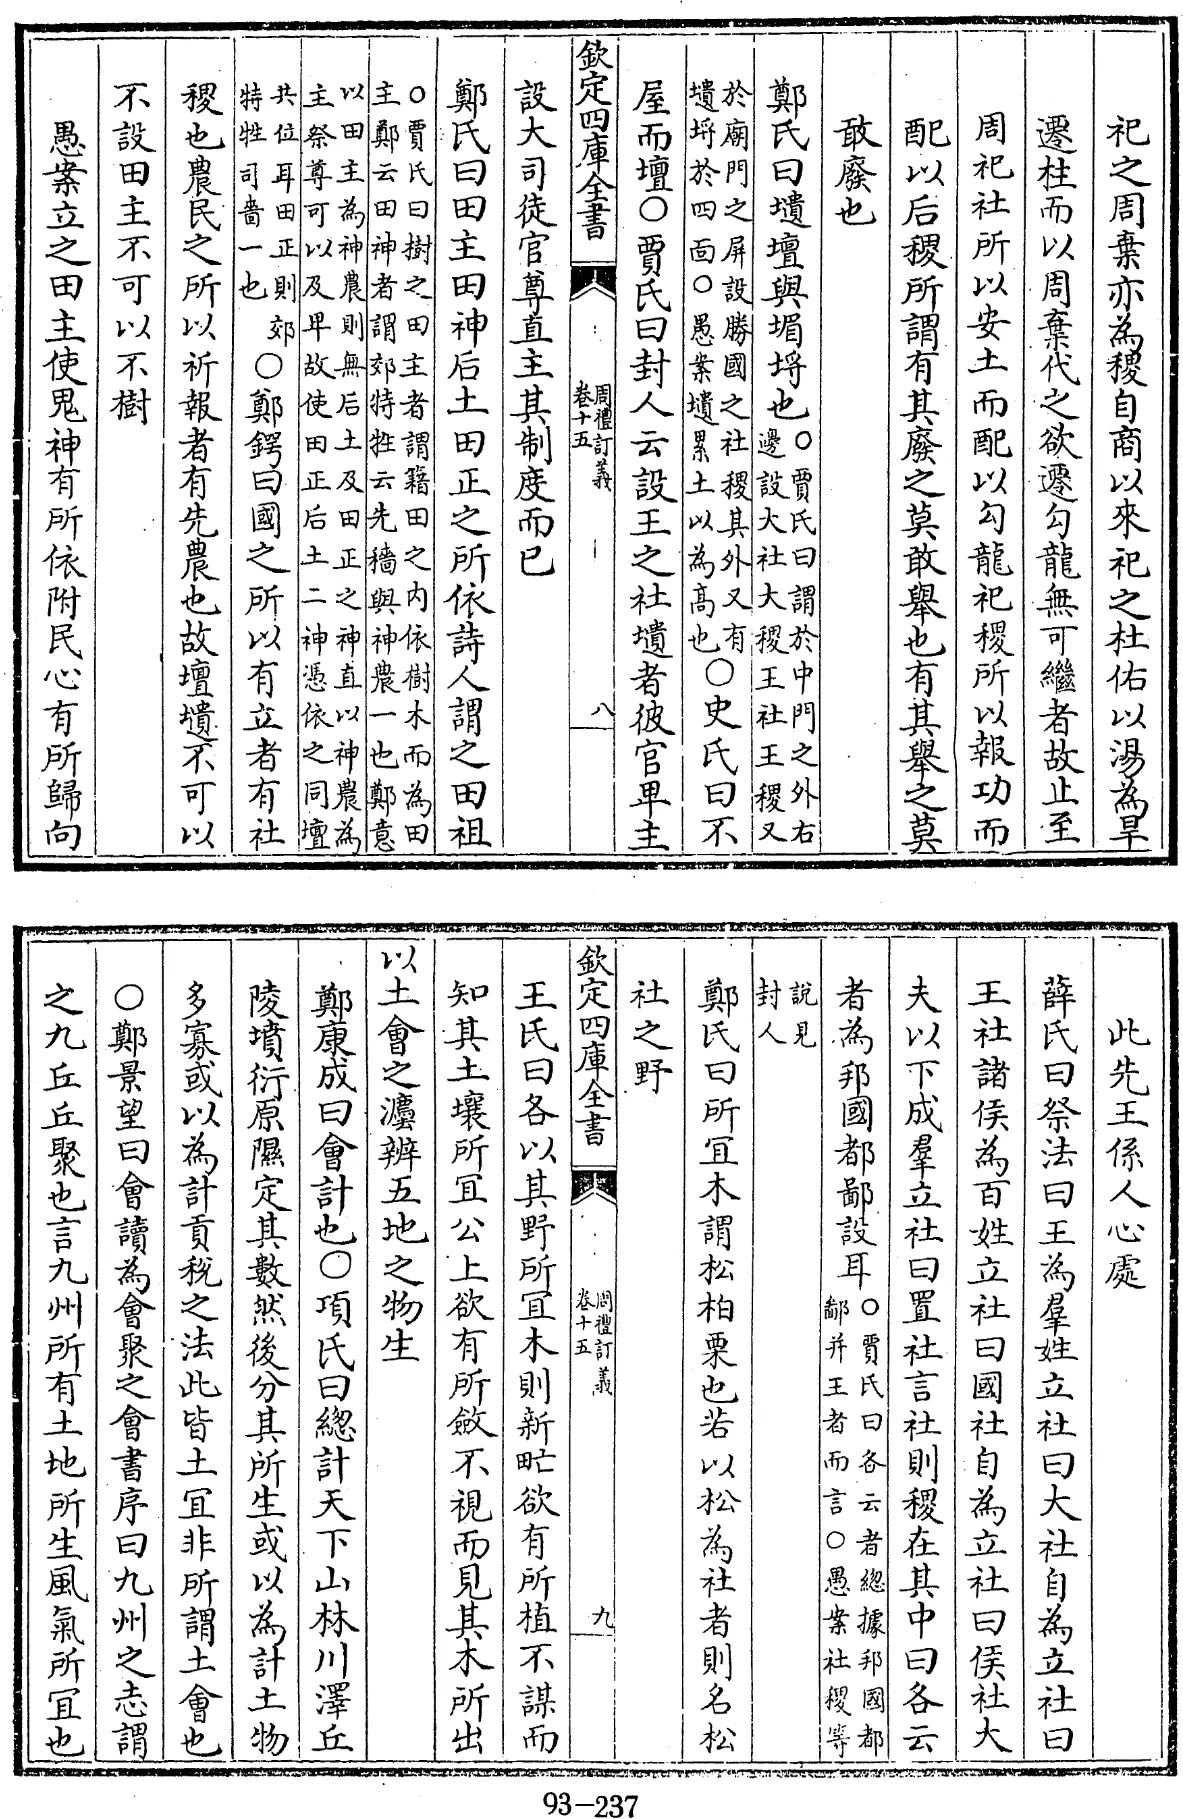 祀之周棄亦為稷自商以來祀之杜佑以湯為旱
遷柱而以周棄代之欲遷勾龍無可繼者故止至
周祀社所以安土而配以勾龍祀稷所以報功而
配以后稷所謂有其廢之莫敢舉也有其舉之莫
敢廢也
鄭氏曰壝壇與堳埒也
○賈氏曰謂於中門之外右
邊設大社大稷王社王稷又
於廟門之屏設勝國之社稷其外又有
壝埒於四面○愚案壝累土以為髙也
○史氏曰不
屋而壇○賈氏曰封人云設王之社壝者彼官卑主
欽定四庫全書
周禮訂義
卷十五
八
設大司徒官尊直主其制度而已
鄭氏曰田主田神后土田正之所依詩人謂之田祖
○賈氏曰樹之田主者謂籍田之內依樹木而為田
主鄭云田神者謂郊特牲云先穡與神農一也鄭意
以田主為神農則無后土及田正之神直以神農為
主祭尊可以及卑故使田正后土二神憑依之同壇
共位耳田正則郊
特牲司嗇一也
○鄭鍔曰國之所以有立者有社
稷也農民之所以祈報者有先農也故壇壝不可以
不設田主不可以不樹
愚案立之田主使鬼神有所依附民心有所歸向
此先王係人心處
薛氏曰祭法曰王為羣姓立社曰大社自為立社曰
王社諸侯為百姓立社曰國社自為立社曰侯社大
夫以下成羣立社曰置社言社則稷在其中曰各云
者為邦國都鄙設耳
○賈氏曰各云者總據邦國都
鄙并王者而言○愚案社稷等
說見
封人
鄭氏曰所宜木謂松柏栗也若以松為社者則名松
社之野
欽定四庫全書
周禮訂義
卷十五
九
王氏曰各以其野所宜木則新甿欲有所植不謀而
知其土壤所宜公上欲有所斂不視而見其木所出
以土會之灋辨五地之物生
鄭康成曰會計也○項氏曰總計天下山林川澤丘
陵墳衍原隰定其數然後分其所生或以為計土物
多寡或以為計貢稅之法此皆土宜非所謂土會也
○鄭景望曰會讀為會聚之會書序曰九州之志謂
之九丘丘聚也言九州所有土地所生風氣所宜也
93-237